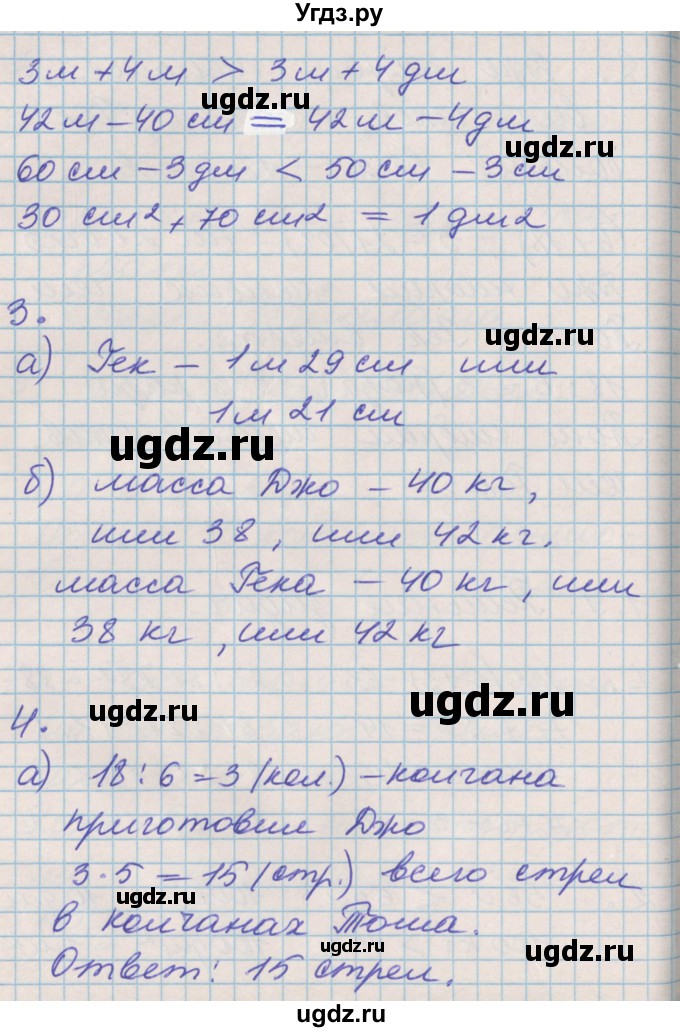 Угдз.ру
3м + 4м > 3м + 4дм
ugdz.ru
42м - 40см = 42м - 4дм
ugdz.ru
60см - 3дм < 50см - 3см
ugdz.ru
30 см2 + 70 см2 = 1 дм2
3.
ugdz.ru
а) Гек - 1м 29см или
1м 21 см
ugdz.ru
б) масса Джо - 40 кг,
или 38, или 42кг.
масса Гека - 40 кг, или
38 кг, или 42 кг
ugdz.ru
ugdz.ru
4.
а) 18 : 6 = 3 (кол.) - колчана
приготовил Джо
3·5 = 15 (стр.) всего стрел
ugdz.ru
в колчанах Тома.
ugdz.ru
ugdz.ru
Ответ: 15 стрел.
ugdz.ru